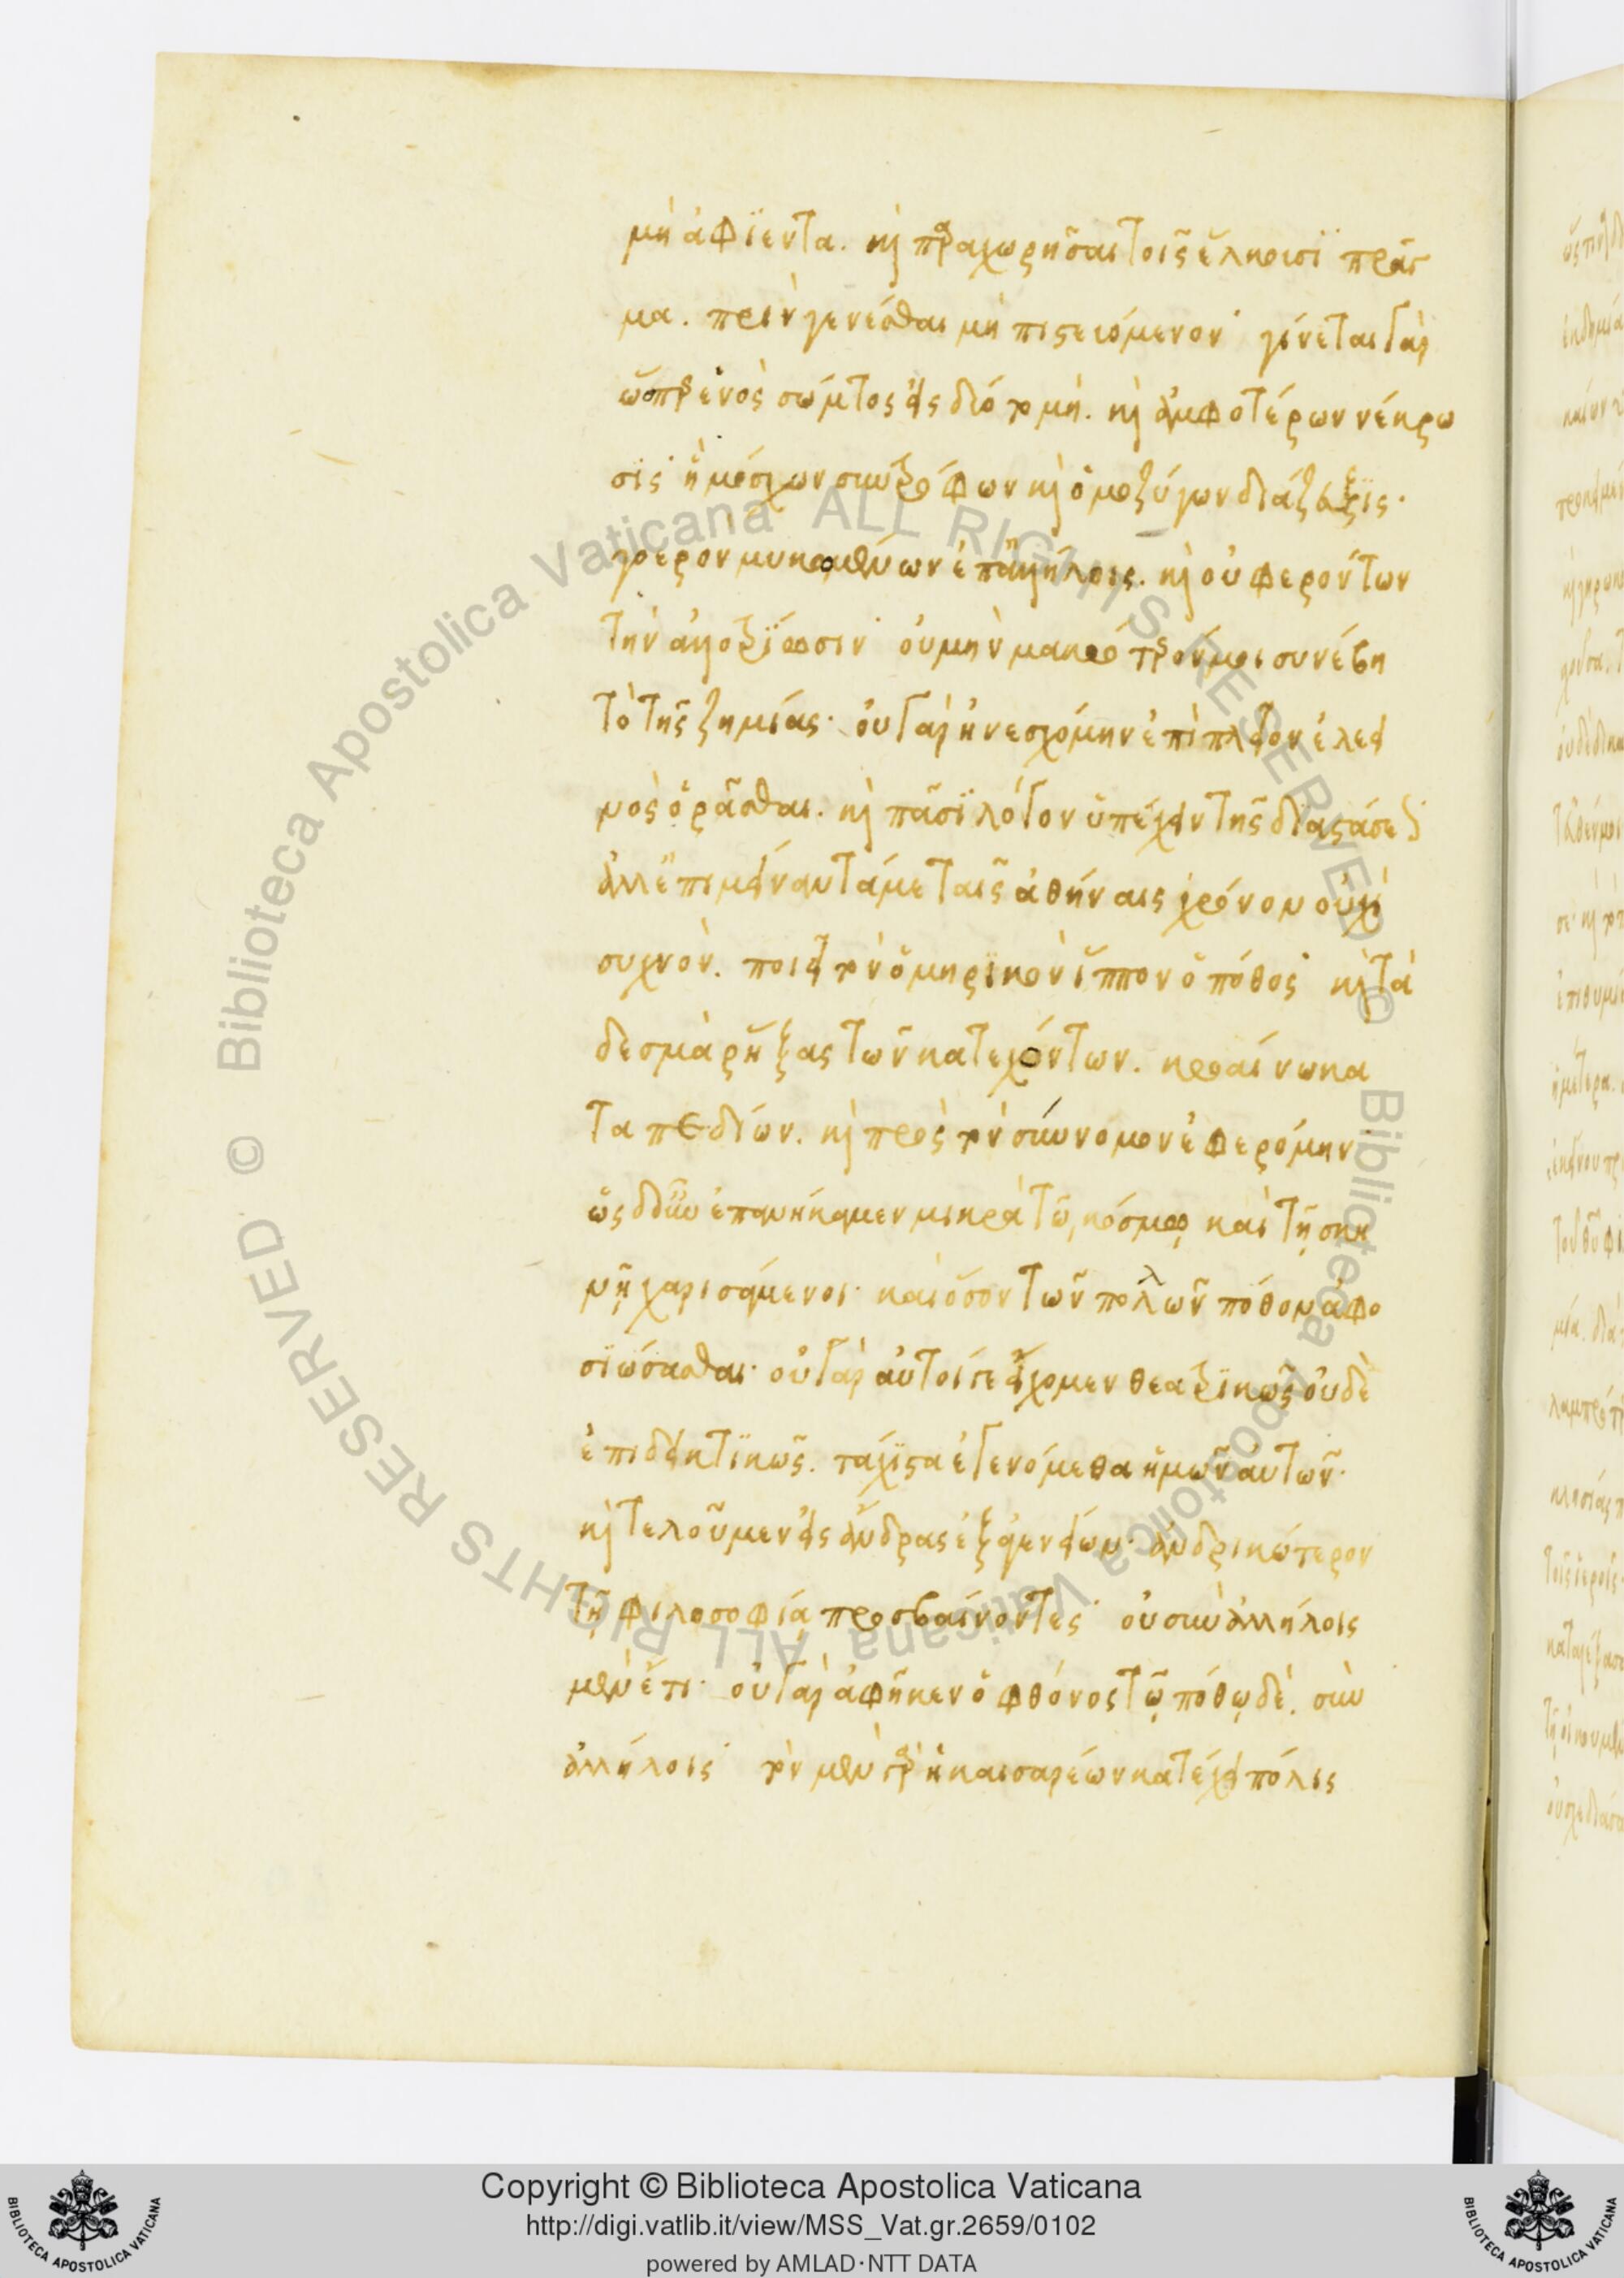 μὴ ἀφϊέντα. καὶ παραχωρῆσαι τοῖς ἕλκουσϊ πρᾶγ
μα. πρὶν γενέσθαι μὴ πιστευόμενον· γίνεται γὰρ
ὥσπερ ἑνὸς σώματος εἰς δύο τομή. καὶ ἀμφοτέρων νέκρω
σις· ἢ μόσχων συντρόφων καὶ ὁμοζύγων διάζευξϊς·
γοερὸν μυκωμένων ἐπ' ἀλλήλοις. καὶ οὐ φερόντων
τὴν ἀλλοτρίωσιν· οὐ μὴν μακρότερόν μοι συνέβη
τὸ τῆς ζημίας· οὐ γὰρ ἠνεσχόμην ἐπιπλεῖον ἐλεει
νὸς ὁρᾶσθαι. καὶ πᾶσϊ λόγον ὑπέχειν τῆς διαστάσεως
ἀλλ' ἐπιμείναντά με ταῖς ἀθήναις χρόνον οὐχὶ
συχνὸν. ποιεῖ τὸν ὁμηρϊκὸν ἵππον ὁ πόθος· καὶ τὰ
δεσμὰ ῥήξας τῶν κατεχόντων. κροαίνω κα
τὰ πεδίων. καὶ πρὸς τὸν σύννομον ἐφερόμην·
ὡς δ' οὖν ἐπανήκαμεν μικρὰ τῷ κόσμῳ καὶ τῇ σκη
νῇ χαρισάμενοι· καὶ ὅσον τῶν πολλῶν πόθον ἀφο
σϊώσασθαι· οὐ γὰρ αὐτοί γε εἴχομεν θεατρϊκῶς οὐδὲ
ἐπιδεικτϊκῶς. τάχϊστα ἐγενόμεθα ἡμῶν αὐτῶν·
καὶ τελοῦμεν εἰς ἄνδρας ἐξ ἀγενείων· ἀνδρικώτερον
τῇ φιλοσοφίᾳ προσβαίνοντες· οὐ σὺν ἀλλήλοις
μὲν ἔτι· οὐ γὰρ ἀφῆκεν ὁ φθόνος τῷ πόθῳ δὲ. σὺν
ἀλλήλοις· τὸν μὲν γὰρ ἡ καισαρέων κατέχει πόλις
Copyright © Biblioteca Apostolica Vaticana
http://digi.vatlib.it/view/MSS_Vat.gr.2659/0102
powered by AMLAD·NTT DATA